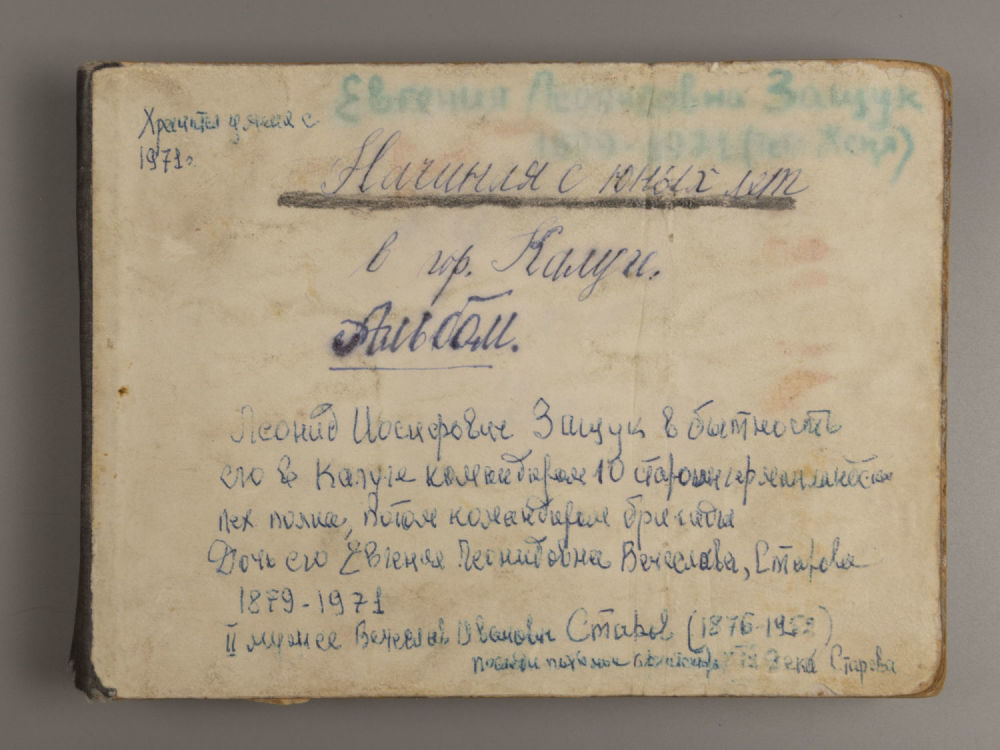 Евгения Леонидовна Защук
1879-1971
Хранится у меня с
1971г.
Начиная с юных лет
в гор. Калуге.
Альбом.
Леонид Иосифович Защук в бытность
его в Калуге командиром 10 староингерманландским
пех полка, потом командиром бригады
Дочь его Евгения Леонидовна Вечеслава, Старова
1879-1971
II муж ее Вечеслав Иванович Старов (1876-19
Старова